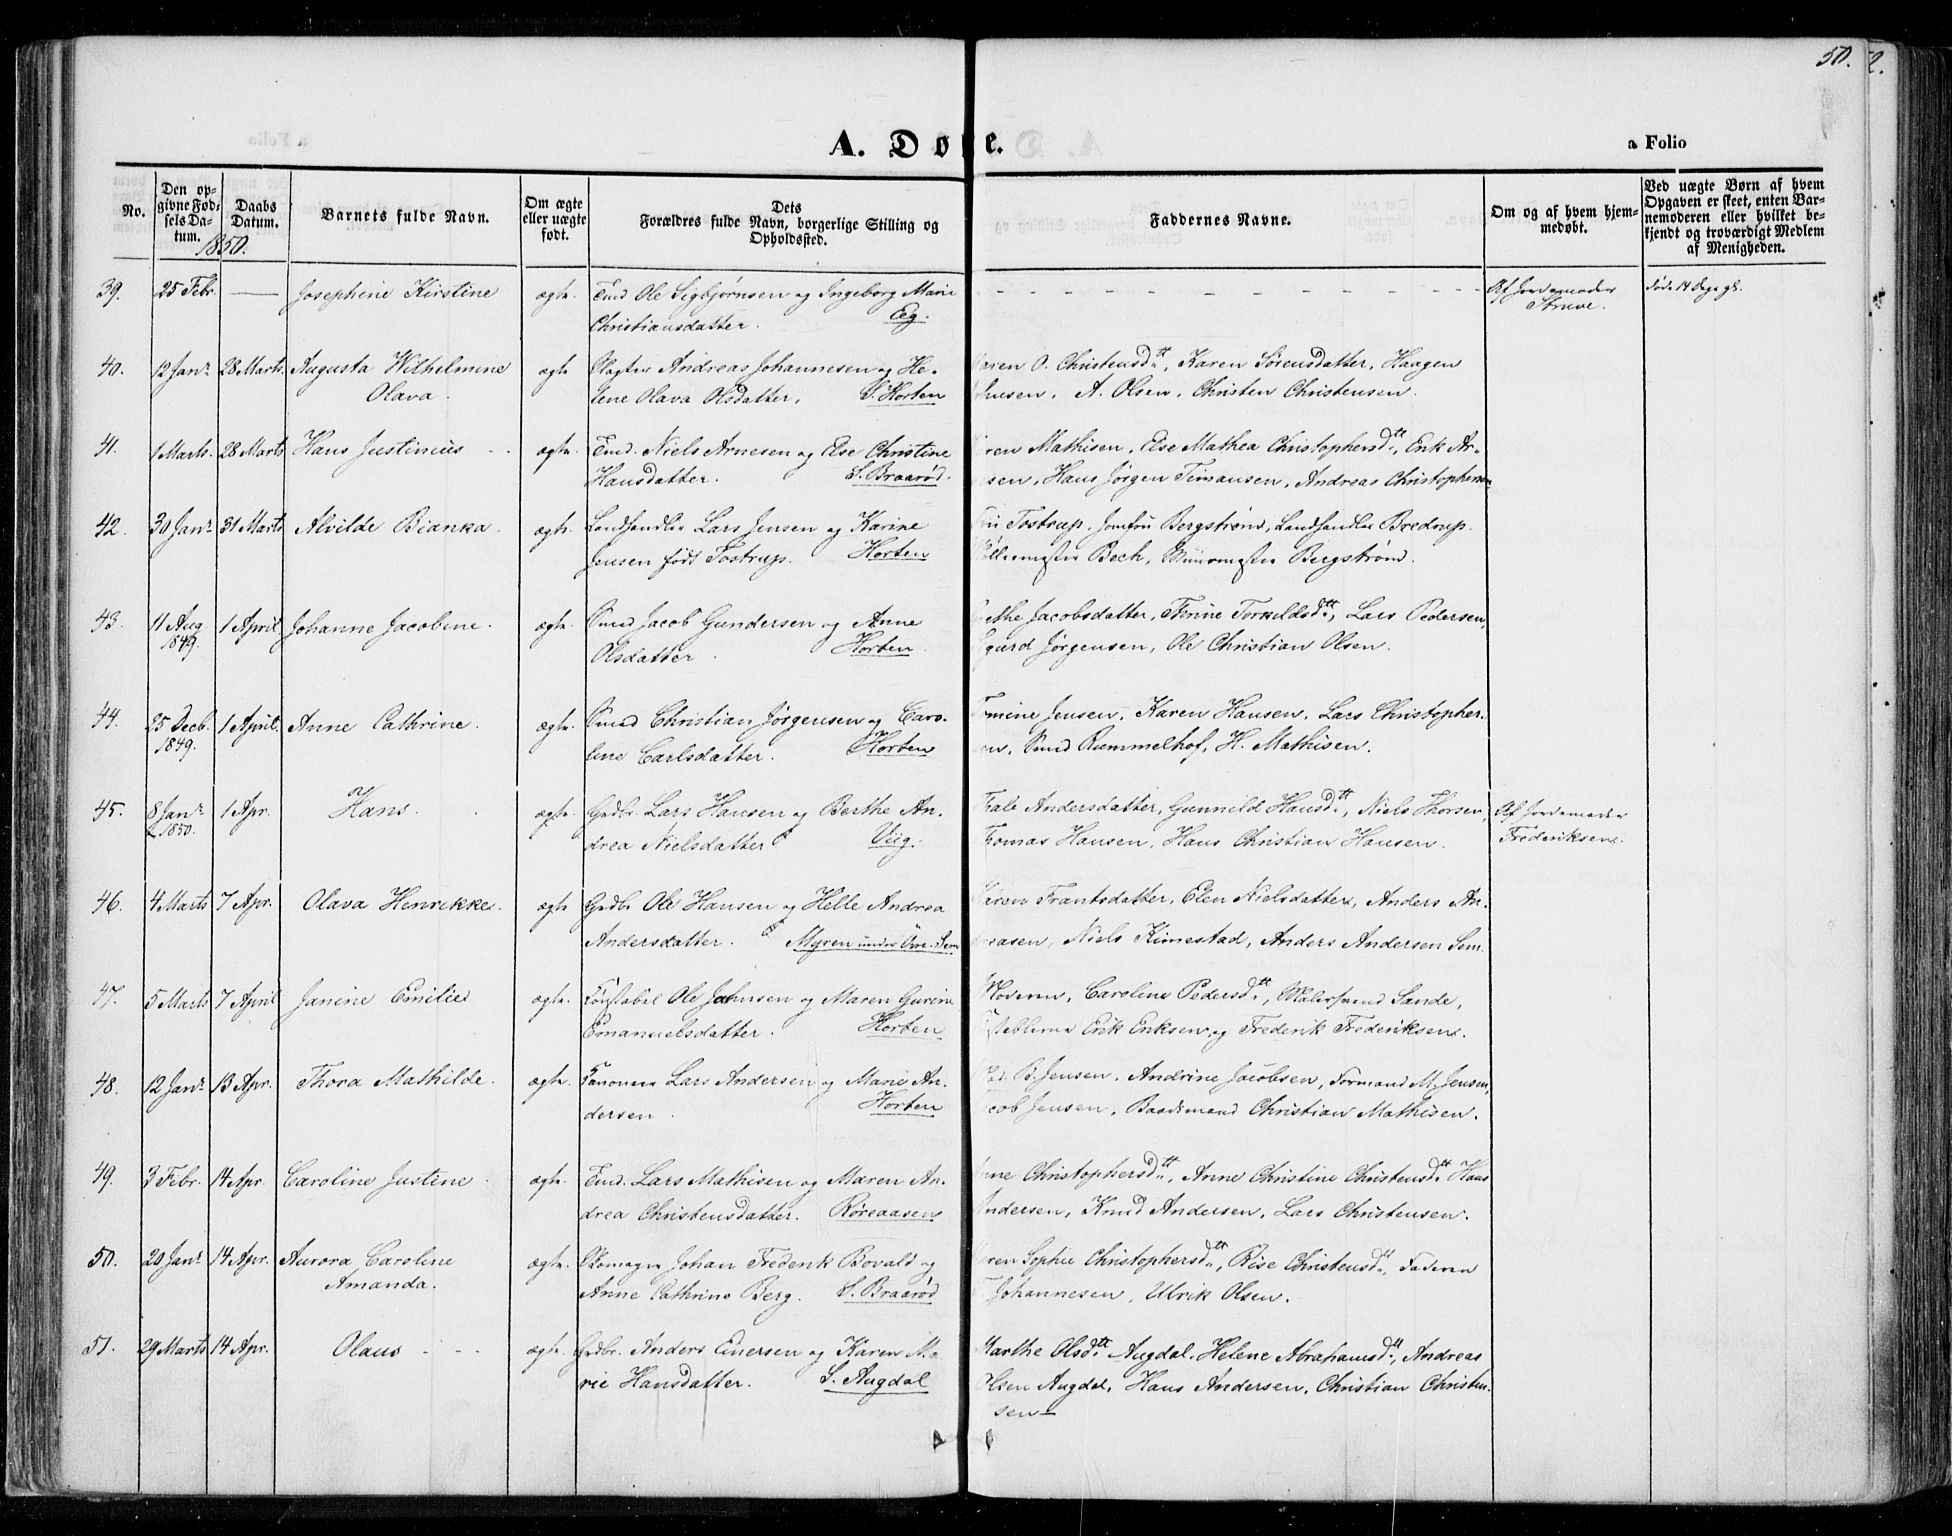 50.
2.
A. Døbte.
a Folio
No.
Den opgivne Fødsels Datum.
Daabs Datum.
1850.
Barnets fulde Navn.
Om ægte eller uægte født.
Dets Forældres fulde Navn, borgerlige Stilling og Opholdssted.
Faddernes Navne.
Om og af hvem hjemmedøbt.
Ved uægte Børn af hvem Opgaven er skeet, enten Barnemoderen eller hvilket bekjendt og troværdigt Medlem af Menigheden.
39. 25 Febr. — Josephine Kirstine ægte. Ole Sigbjørnsen og Ingeborg Marie Af Jordemoder døde 14 Dage gl.
Christiansdatter. Eeg. Struve.
40. 12 Janr 28 Marts. Augusta Wilhelmine ægte Andreas Johannesen og He- Maren O. Christensdtt, Karen Sørensdatter, Haagen
Olava. lene Olava Olsdatter. S. Horten A. Olsen, Christen Christensen.
41. 1 Marts. 28 Marts Hans Justinius ægte. Niels Arnesen og Else Christine Mathisen, Else Mathea Christophersdtt, Erik Ar-
Hansdatter. S. Braarød. sen, Hans Jørgen Simansen, Andreas Christophersen
42. 30 Janr 31 Marts Alvilde Bianka. ægte. Landhandler Lars Jensen og Karine Tostrup, Jomfru Bergstrøm, Landhandler Bredrup.
Jensen født Tostrup. Horten Bech, Muurmester Bergstrøm.
43. 11 Aug 1849. 1 April Johanne Jacobine. ægte. Smed Jacob Gundersen og Anne Jacobsdatter, Torkeldsdtt, Lars Pedersen,
Olsdatter. Horten. Jørgensen, Ole Christian Olsen.
44. 25 Decb. 1849. 1 April. Anne Cathrine. ægte. Smed Christian Jørgensen og Caro- Jensen, Karen Hansen, Lars Christopher-
line Carlsdatter. Horten sen, Smed Rummelhof, H. Mathisen.
45. 8 Janr 1850. 1 Apr. Hans. ægte. Grdbr. Lars Hansen og Berthe An- Andersdatter, Gunnild Hansdtt, Niels Thorsen, Af Jordemoder
drea Nielsdatter Viig. Thomas Hansen, Hans Christian Hansen. Frederiksen.
46. 4 Marts 7 Apr. Olava Henrikke. ægte Grdbr Ole Hansen og Helle Andrea Frantsdatter, Elen Nielsdatter, Anders An-
Andersdatter. Myren under Øvre-Sem Niels Kimestad, Anders Andersen Sem.
47. 5 Marts 7 April Janine Emilie ægte. Konstabel Ole Johnsen og Maren Gurine Moderen, Caroline Pedersdtt, Malersvend Sande,
Emanuelsdatter. Horten Erik Eriksen og Frederik Frederiksen.
48. 12 Janr 13 Apr. Thora Mathilde. ægte. Kanoneer Lars Andersen og Marie An- B. Jensen, Andrine Jacobsen, Formand M. Jensen,
dersen. Horten Jacob Jensen, Baadsmand Christian Mathisen.
49. 3 Febr. 14 Apr. Caroline Justine. ægte. Lars Mathisen og Maren An- Christophersdtt, Anne Christine Christensdtt Hans
drea Christensdatter. Røreaasen Andersen, Knud Andersen, Lars Christensen.
50. 20 Janr 14 Apr. Aurora Caroline ægte. Skomager Johan Frederik Bovald og Sophie Christophersdtt, Christensdtt, Faderen
Amanda. Anne Cathrine Berg. S. Braarød Johannesen, Ulrik Olsen.
51. 29 Marts 14 Apr. Olaus ægte. Grdbr. Anders Einersen og Karen Ma- Marthe Olsdtt Augdal, Helene Abrahamsdtt, Andreas
rie Hansdatter. S. Augdal Olsen Augdal, Hans Andersen, Christian Christen-
sen